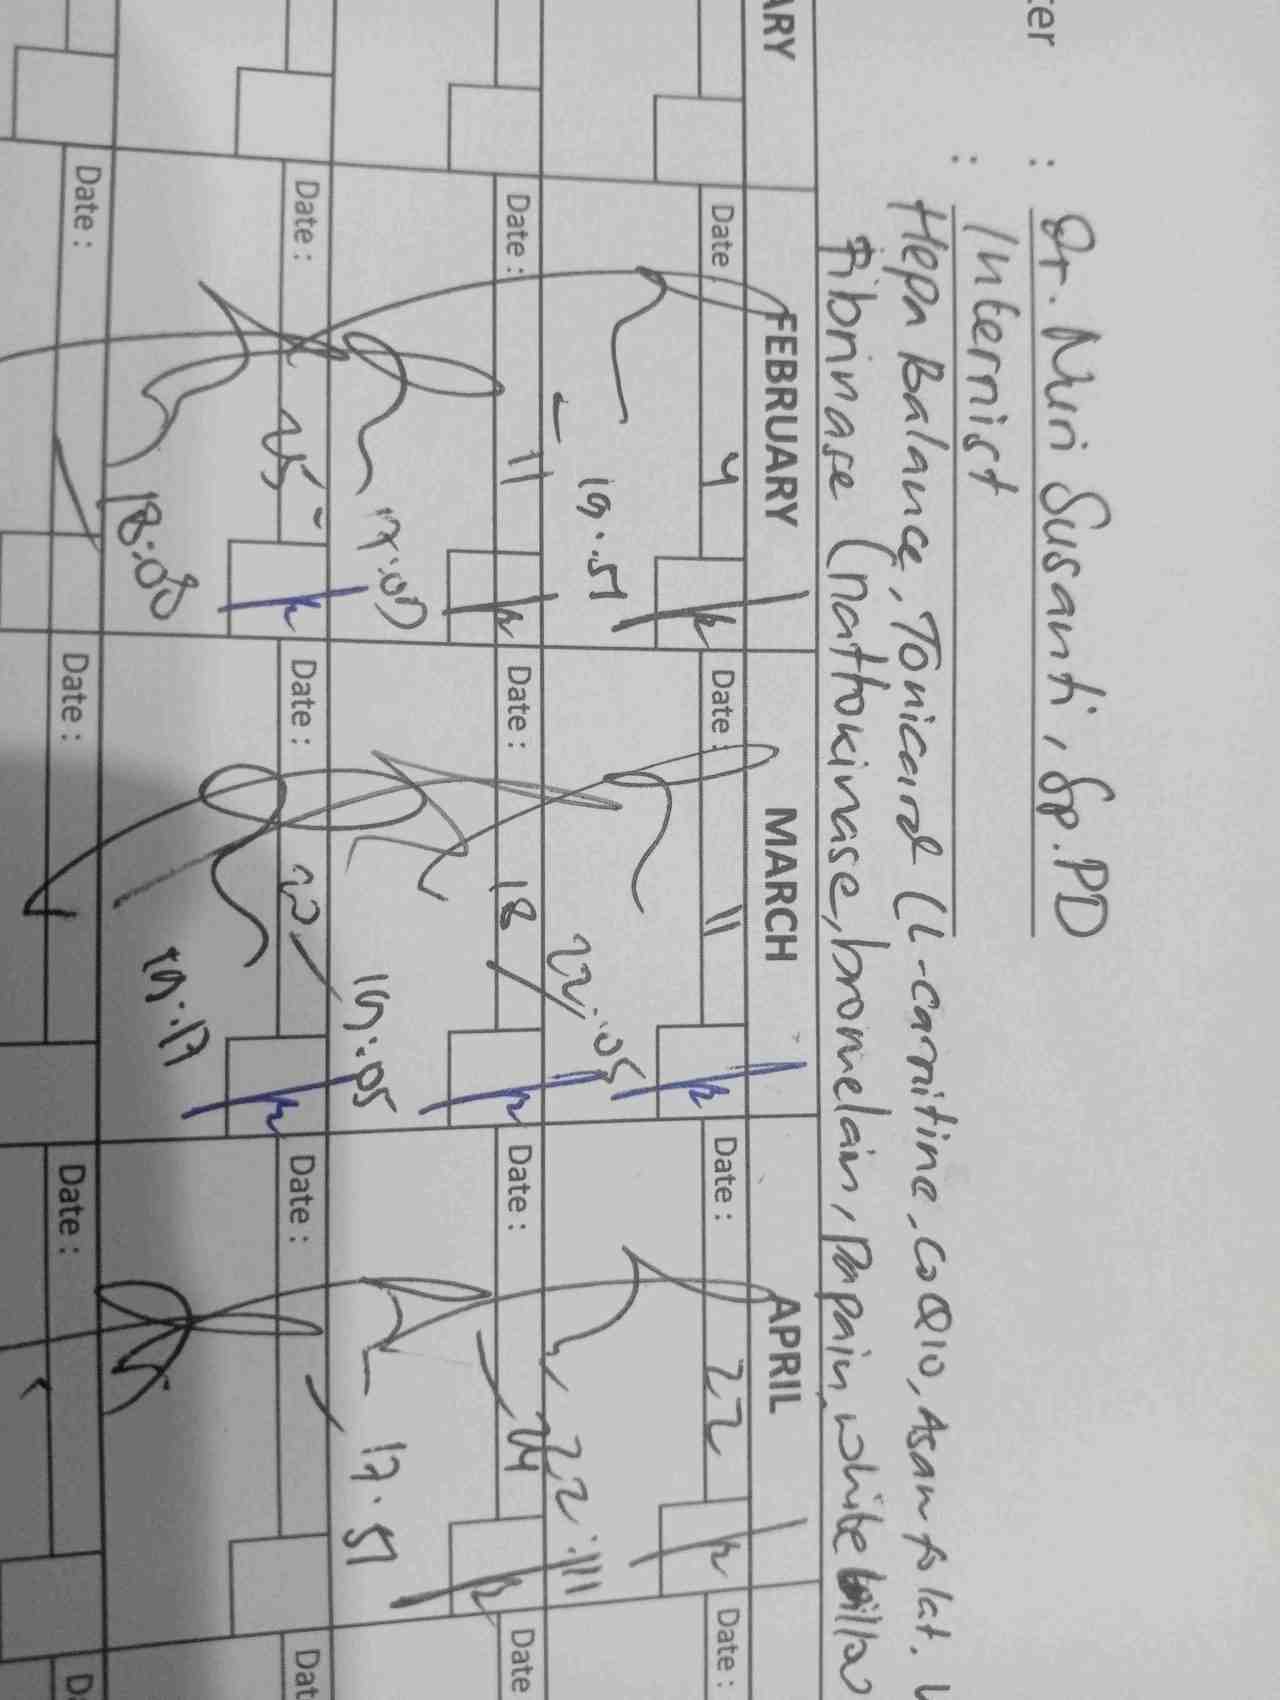 ter : Dr. Nuri Susanti, Sp.PD
: Internist
Hepa Balance, Tonicard (L-carnitine, CoQ10, Asam folat.
Fibrinnase (nattokinase, bromelain, papain, white willow
ARY FEBRUARY MARCH APRIL
Date : 4 Date : 11 Date : 22 Date :
19.51 22:05 22:111
Date : 11 Date : 18 Date : 24 Date
17:00 19:05 17.51
Date : 25 Date : 22 Date : Dat
18:00 19:17
Date : Date : Date : Da